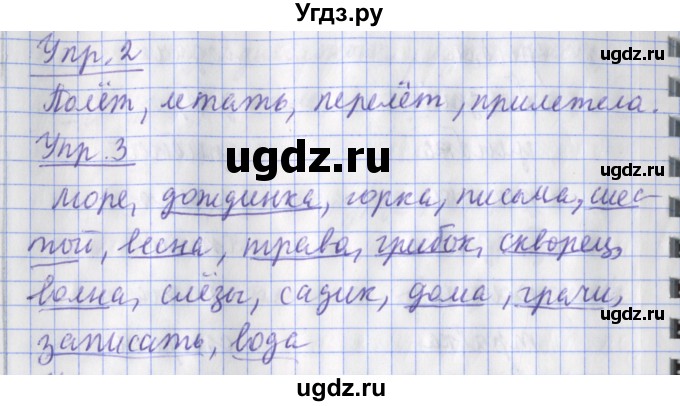 Угдз.ру
ugdz.ru
Упр.2
ugdz.ru
Полёт, летать, перелёт, прилетела.
Упр.3
ugdz.ru
ugdz.ru
море, дождинка, горка, письма, шес-
той, весна, трава, грибок, скворец,
ugdz.ru
волна, слёзы, садик, дома, грачи,
записать, вода
ugdz.ru
ugdz.ru